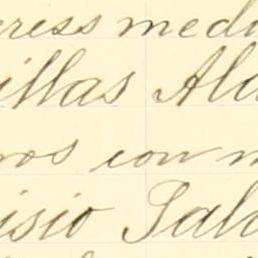 ress medi
illas Ala
nos con m
isio Pala